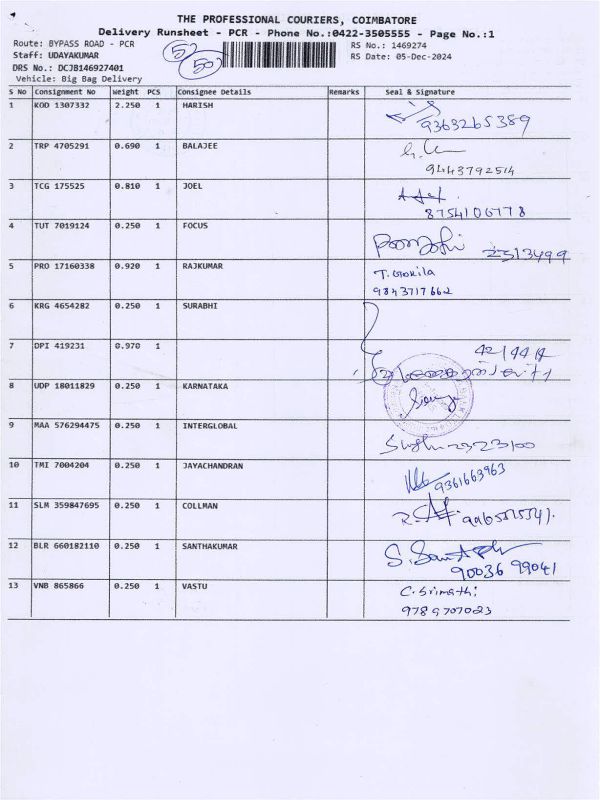 THE PROFESSIONAL COURIERS, COIMBATORE
Delivery Runsheet - PCR - Phone No.:0422-3505555 - Page No.:1
Route: BYPASS ROAD - PCR
Staff: UDAYAKUMAR
DRS No.: DCJB146927401
Vehicle: Big Bag Delivery
52
50
RS No.: 1469274
RS Date: 05-Dec-2024
S No Consignment No Weight PCS Consignee Details Remarks Seal & Signature
1 KOD 1307332 2.250 1 HARISH 9363265389
2 TRP 4705291 0.690 1 BALAJEE 9443792514
3 TCG 175525 0.810 1 JOEL 8754106778
4 TUT 7019124 0.250 1 FOCUS 2513499
5 PRO 17160338 0.920 1 RAJKUMAR T. Gokila
9843717662
6 KRG 4654282 0.250 1 SURABHI
7 DPI 419231 0.970 1
8 UDP 18011829 0.250 1 KARNATAKA
9 MAA 576294475 0.250 1 INTERGLOBAL 2323100
10 TMI 7004204 0.250 1 JAYACHANDRAN 9361663963
11 SLM 359847695 0.250 1 COLLMAN
12 BLR 660182110 0.250 1 SANTHAKUMAR 90036 99041
13 VNB 865866 0.250 1 VASTU C. Srimathi
9789707023